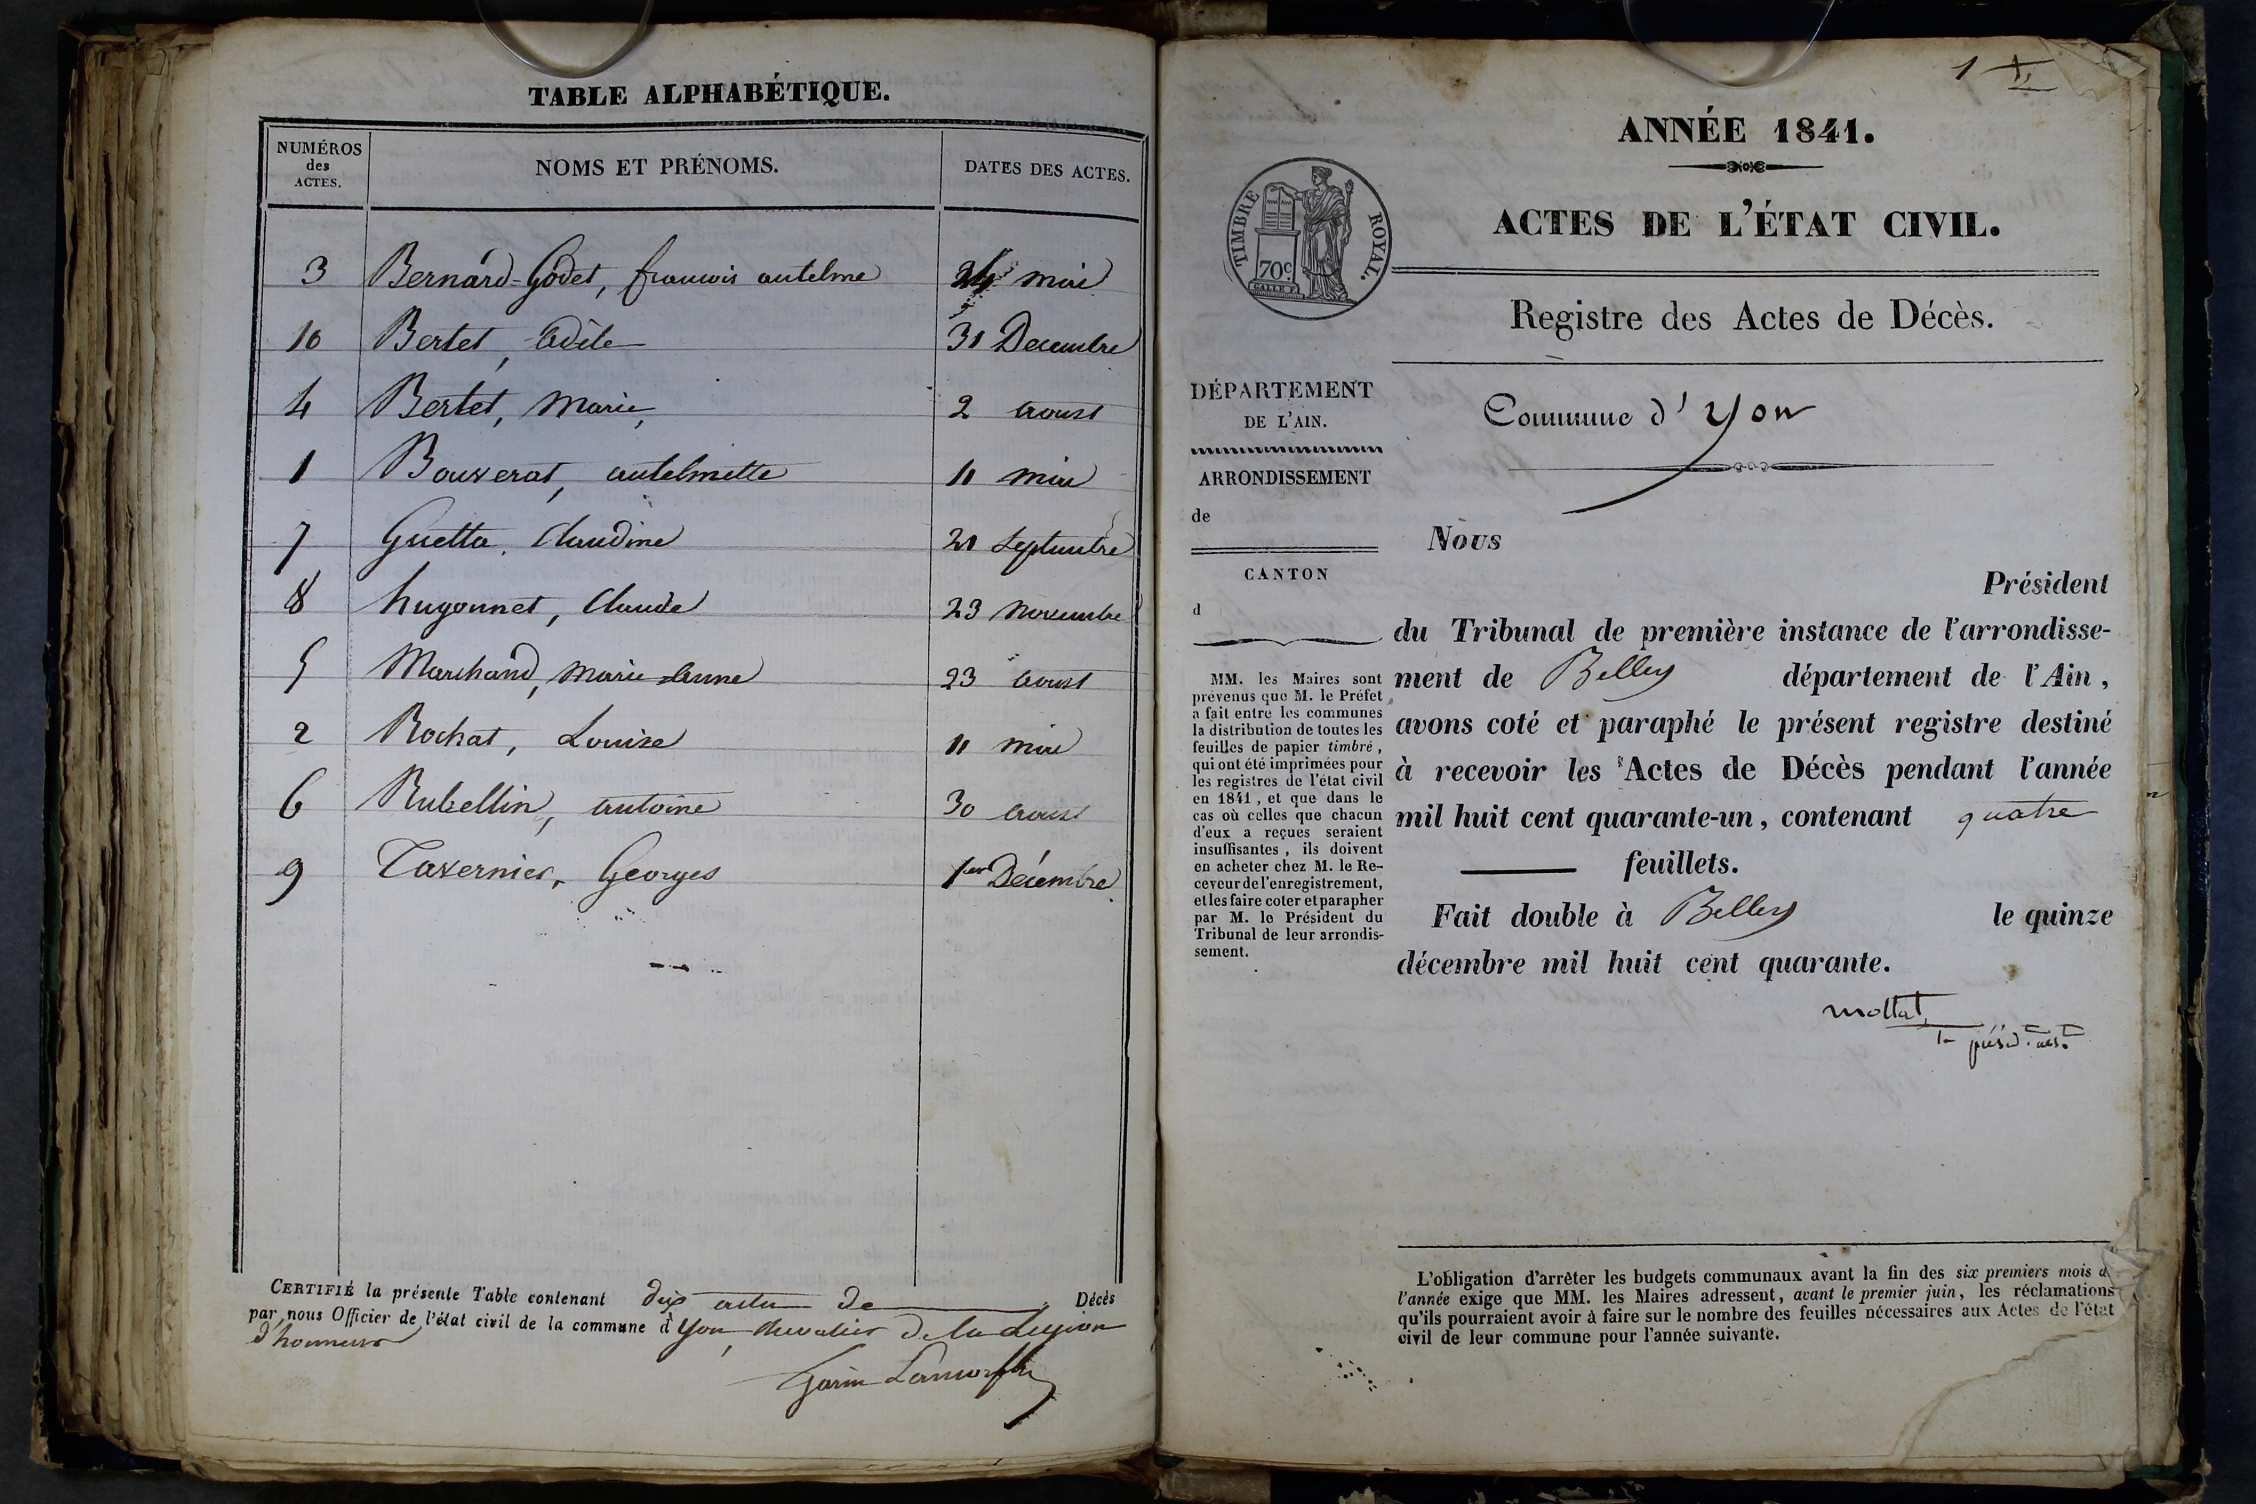 TABLE ALPHABÉTIQUE.
NUMÉROS des ACTES.
NOMS ET PRÉNOMS.
DATES DES ACTES.
3 Bernard-Godet, francois antelme 24 mai
10 Bertet, Adèle 31 Decembre
4 Bertet, Marie, 2 Aoust
1 Bouverat, antelmette 11 mai
7 Guetta, Claudine 21 Septembre
8 hugonnet, Claude 23 Novembre
5 Marchand, Marie-Anne 23 Aoust
2 Rochat, Louise 11 mai
6 Rubellin, antoine 30 Aoust
9 Tavernier, Georges 1er Décembre
CERTIFIÉ la présente Table contenant dix actes de Décès
par nous Officier de l'état civil de la commune d'Yon, chevalier de la Legion
d'honneur
Garin
ANNÉE 1841.
1
TIMBRE ROYAL.
70c.
ACTES DE L'ÉTAT CIVIL.
Registre des Actes de Décès.
DÉPARTEMENT
DE L'AIN.
ARRONDISSEMENT
de
CANTON
d
MM. les Maires sont
prévenus que M. le Préfet
a fait entre les communes
la distribution de toutes les
feuilles de papier timbré,
qui ont été imprimées pour
les registres de l'état civil
en 1841, et que dans le
cas où celles que chacun
d'eux a reçues seraient
insuffisantes, ils doivent
en acheter chez M. le Re-
ceveur de l'enregistrement,
et les faire coter et parapher
par M. le Président du
Tribunal de leur arrondis-
sement.
Commune d'Yon
Nous
Président
du Tribunal de première instance de l'arrondisse-
ment de Belley département de l'Ain,
avons coté et paraphé le présent registre destiné
à recevoir les Actes de Décès pendant l'année
mil huit cent quarante-un, contenant quatre
feuillets.
Fait double à Belley le quinze
décembre mil huit cent quarante.
Mollat
L'obligation d'arrêter les budgets communaux avant la fin des six premiers mois d
l'année exige que MM. les Maires adressent, avant le premier juin, les réclamations
qu'ils pourraient avoir à faire sur le nombre des feuilles nécessaires aux Actes de l'état
civil de leur commune pour l'année suivante.